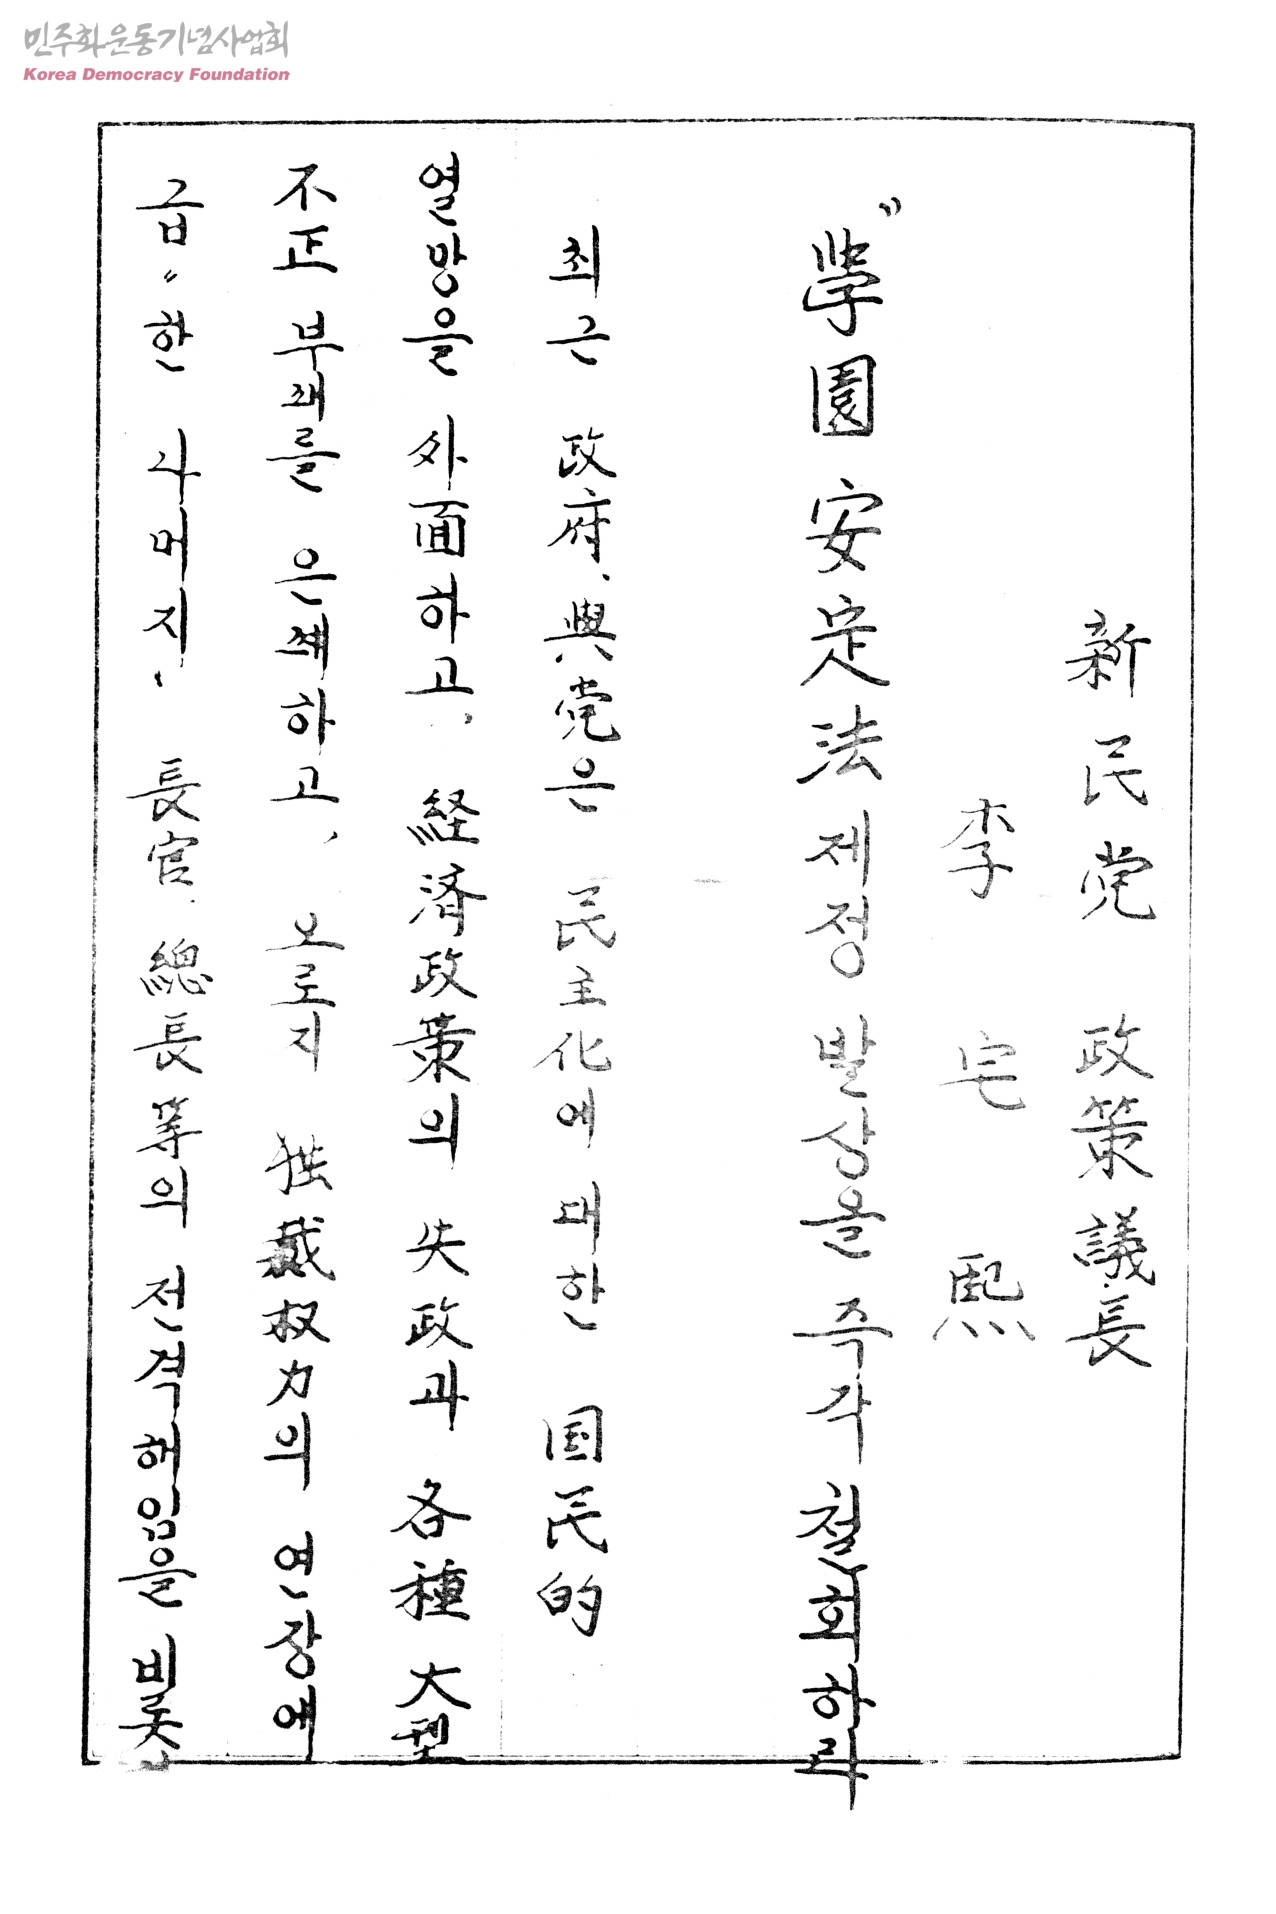 민주화운동기념사업회
Korea Democracy Foundation
新民党 政策議長
李宅熙
"学園安定法 제정 발상을 즉각 철회하라
최근 政府、與党은 民主化에 대한 国民的
열망을 外面하고、 経済政策의 失政과 各種 大型
不正 부패를 은폐하고、 오로지 独裁权力의 연장에
급"한 나머지" 長官、總長等의 전격해임을 비롯